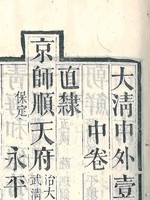 大淸中外壹
中卷
直隸
京師順天府
保定
永平
治大
武淸